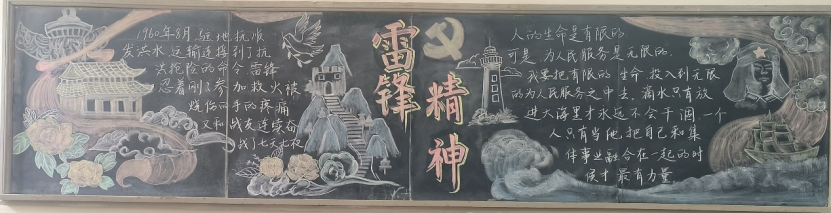 1960年8月，驻地抚顺
发洪水，运输连接到了抗
洪抢险的命令。雷锋
忍着刚刚参加救火被
烧伤的手的疼痛
又和战友连续奋
战了七天七夜
雷锋
精神
人的生命是有限的
可是，为人民服务是无限的，
我要把有限的生命，投入到无限
的为人民服务之中去，滴水只有放
进大海里才永远不会干涸，一个
人只有当他把自己和集
体事业融合在一起的时
候才最有力量